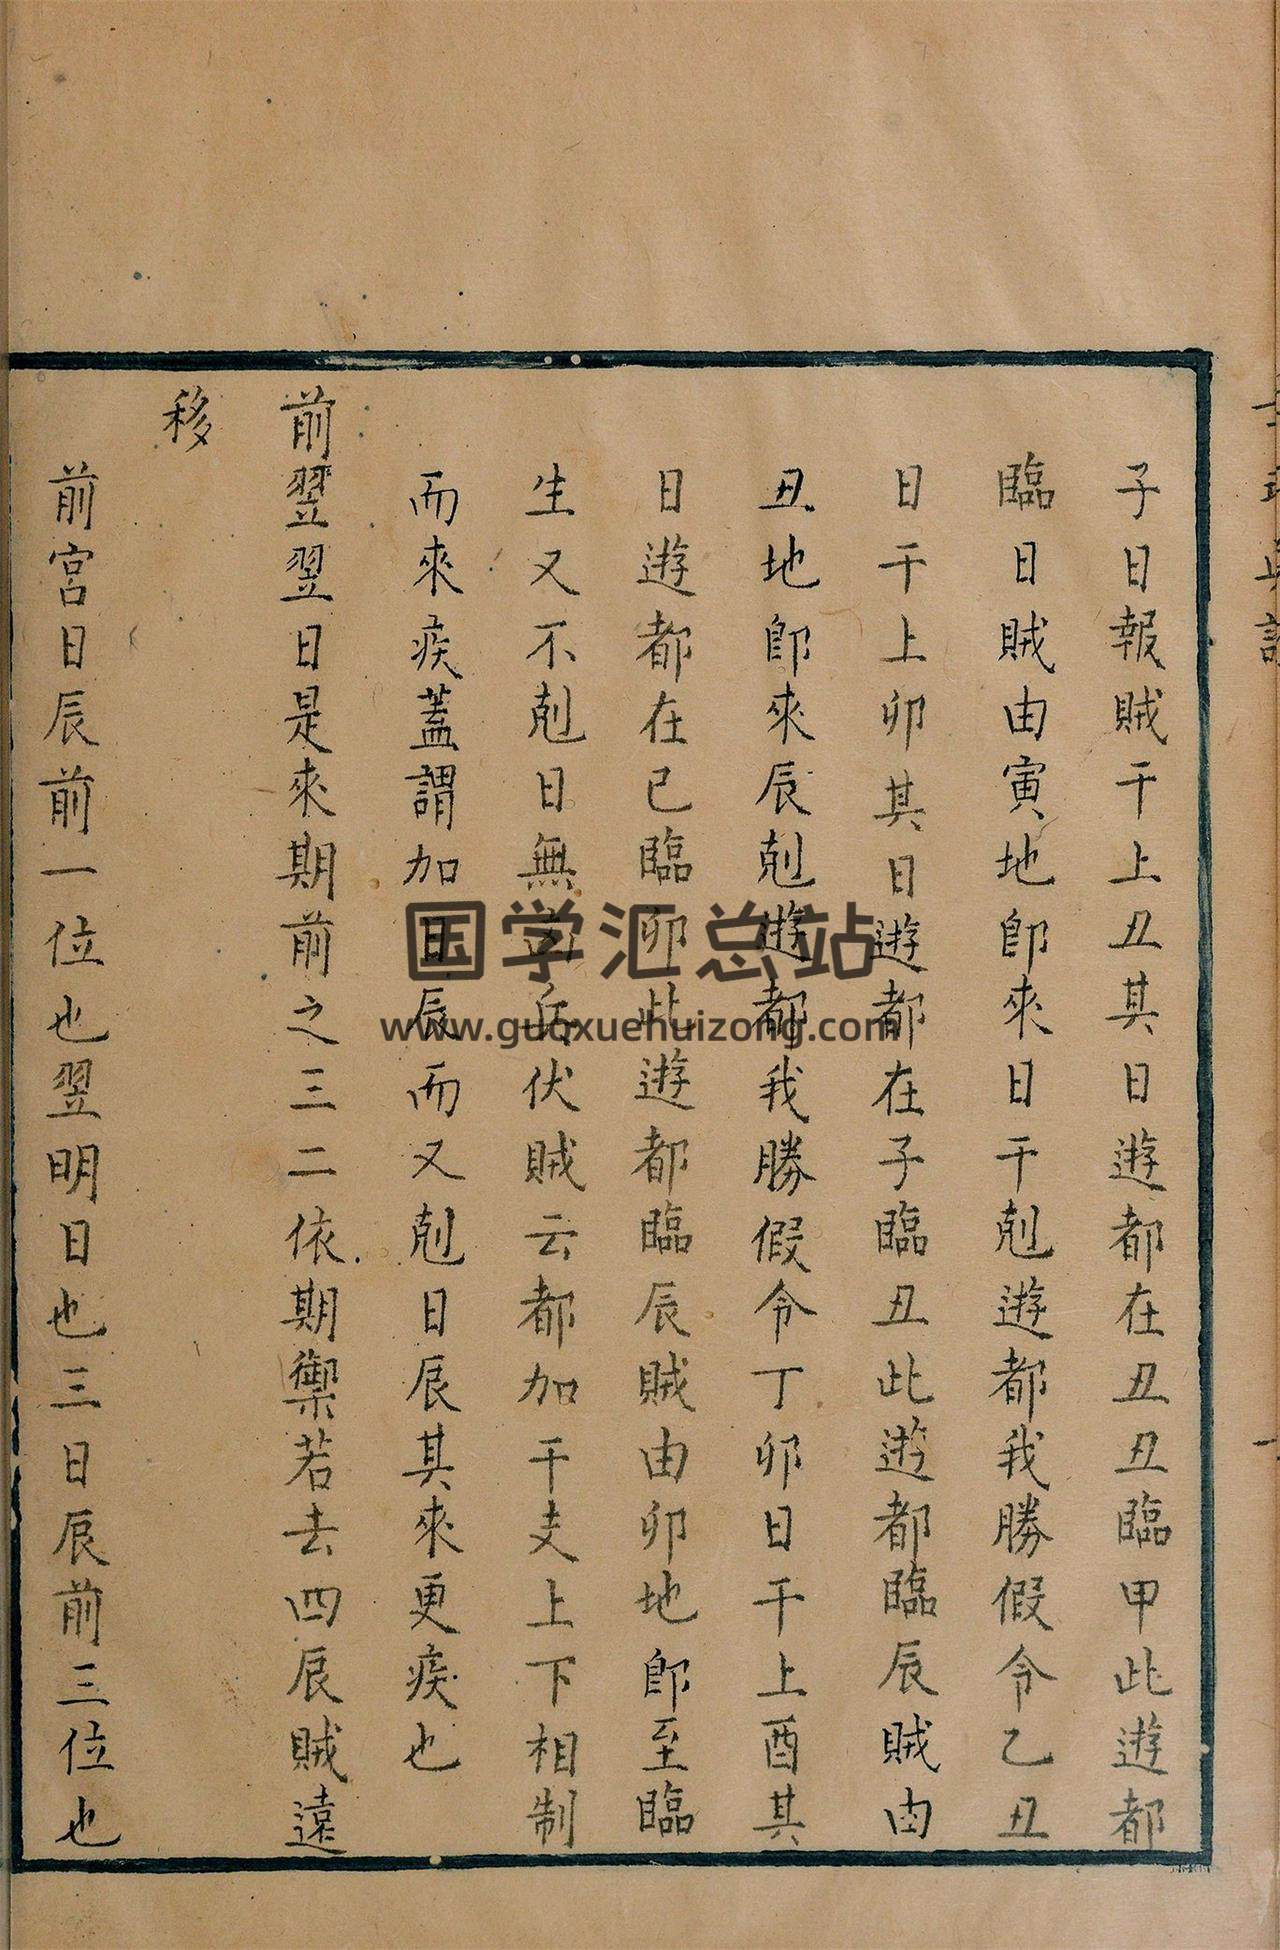 子日報賊干上丑其日遊都在丑丑臨甲此遊都
臨日賊由寅地即來日干剋遊都我勝假令乙丑
日干上卯其日遊都在子臨丑此遊都臨辰賊由
丑地即來辰剋遊都我勝假令丁卯日干上酉其
日遊都在巳臨卯此遊都臨辰賊由卯地即至臨
生又不剋日無兵伏賊云都加干支上下相制
而來疾蓋謂加日辰而又剋日辰其來更疾也
前翌翌日是來期前之三二依期禦若去四辰賊遠
移
前宮日辰前一位也翌明日也三日辰前三位也
国学汇总站
www.guoxuehuizong.com